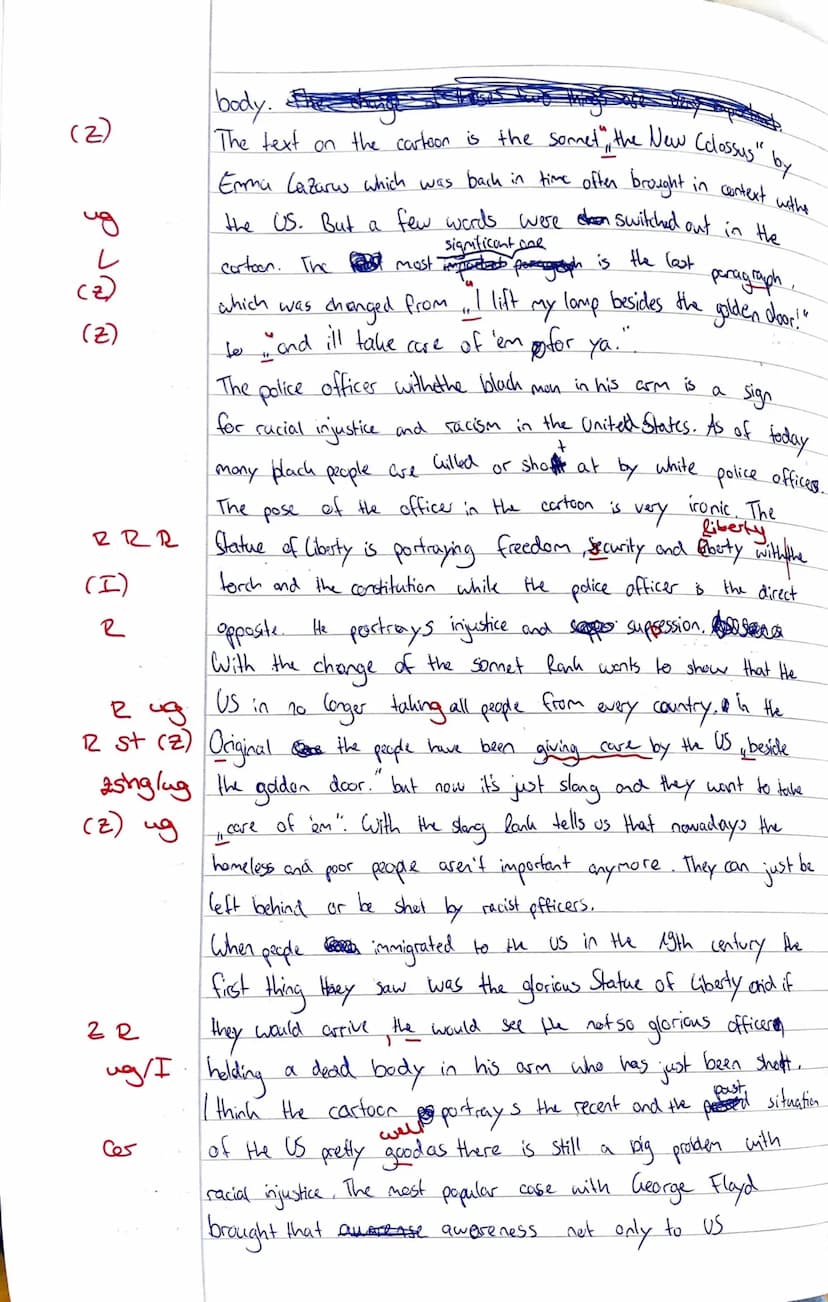 body.
(Z) The text on the cartoon is the sonnet „the New Colossus" by
Emma Lazarus which was back in time often brought in context with the
ug the US. But a few words were switched out in the
L cartoon. The most significant one is the last paragraph,
(Z) which was changed from „I lift my lamp besides the golden door!"
(Z) to „and ill take care of 'em for ya."
The police officer with the black man in his arm is a sign
for racial injustice and racism in the United States. As of today
many black people are killed or shot at by white police officers.
The pose of the officer in the cartoon is very ironic. The
liberty
R R R Statue of Liberty is portraying freedom, security and with the
(I) torch and the constitution while the police officer is the direct
R opposite. He portrays injustice and
With the change of the sonnet Rank wants to show that the
R ug US in no longer taking all people from every country. In the
R st (Z) Original the people have been giving care by the US „beside
zshg/ug the golden door." but now it's just slang and they want to take
(Z) ug „care of 'em". With the slang Rank tells us that nowadays the
homeless and poor people aren't important anymore. They can just be
left behind or be shot by racist officers.
When people immigrated to the US in the 19th century the
first thing they saw was the glorious Statue of Liberty and if
Z R they would arrive, the would see the not so glorious officer
ug/I holding a dead body in his arm who has just been shot.
I think the cartoon portrays the recent and the past situation
well
of the US pretty good as there is still a big problem with
racial injustice. The most popular case with George Floyd
brought that awareness not only to US